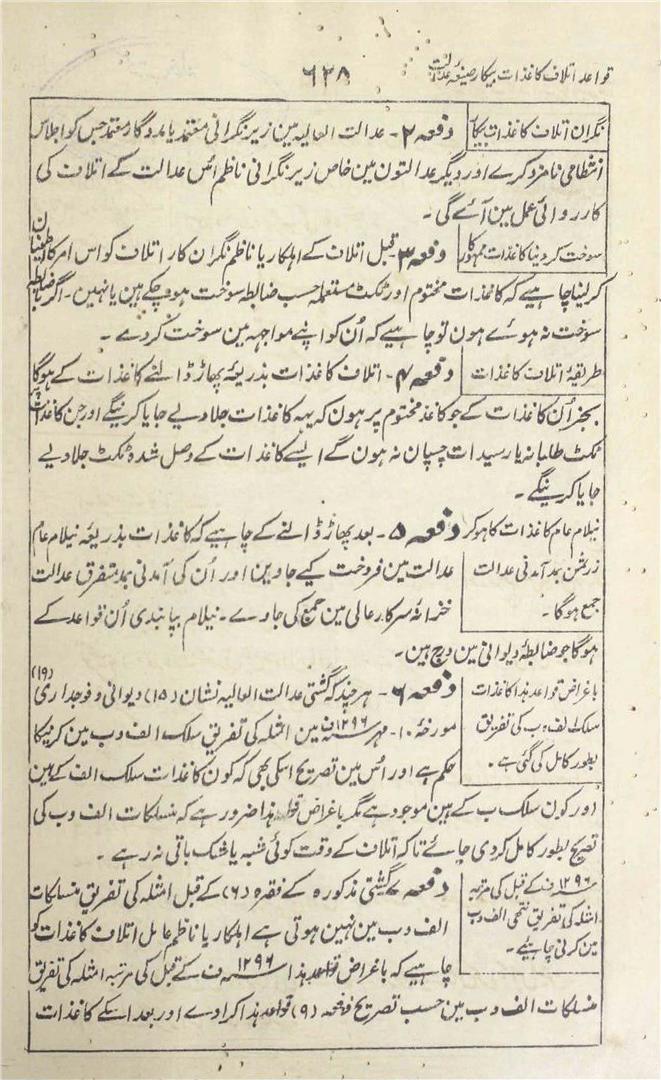 قواعد اتلاف کاغذات بیکار صیغہ عدالت
۶۲۸
نگران اتلاف کاغذات بیکار
دفعہ ۲ - عدالت العالیہ مین زیر نگرانی معتمد یا مددگار معتمد جس کو اجلاس
انتظامی نامزد کرے اور دیگر عدالتون مین خاص زیر نگرانی ناظم اُس عدالت کے اتلاف کی
کارروائی عمل مین آئے گی۔
سوخت کر دینا کاغذات ممہور کا
دفعہ ۳ - قبل اتلاف کے اہلکار یا ناظم نگران کار اتلاف کو اس امر کا اطمینان
کر لینا چاہیے کہ کاغذات مختوم اور ٹکٹ مستعملہ حسب ضابطہ سوخت ہو چکے ہین یا نہین۔ اگر باضابطہ
سوخت نہ ہوئے ہون تو چاہیے کہ اُن کو اپنے مواجہہ مین سوخت کر دے۔
طریقۂ اتلاف کاغذات
دفعہ ۴ - اتلاف کاغذات بذریعۂ پھاڑ ڈالنے کاغذات کے ہوگا
بجز اُن کاغذات کے جو کاغذ مختوم پر ہون کہ یہہ کاغذات جلا دیے جایا کرینگے اور جن کاغذات پر
ٹکٹ طلبانہ یا رسیدات چسپان نہ ہون گے ایسے کاغذات کے وصل شدہ ٹکٹ جلا دیے
جایا کرینگے۔
نیلام عام کاغذات کا ہو کر
زر ثمن بمد آمدنی عدالت
جمع ہوگا۔
دفعہ ۵ - بعد پھاڑ ڈالنے کے چاہیے کہ کاغذات بذریعہ نیلام عام
عدالت مین فروخت کیے جاوین اور اُن کی آمدنی بمد متفرق عدالت
خزانۂ سرکار عالی مین جمع کی جاوے۔ نیلام بپابندی اُن قواعد کے
ہوگا جو ضابطۂ دیوانی مین درج ہین۔
باغراض قواعد ہذا کاغذات
سلک الف و ب کی تفریق
بطور کامل کی گئی ہے۔
دفعہ ۶ - ہر چند کہ گشتی عدالت العالیہ نشان (۱۵) دیوانی و فوجداری (۱۹)
مورخۂ ۱۰ - مہر ۱۲۹۶ف مین امثلہ کی تفریق سلک الف و ب مین کرنیکا
حکم ہے اور اُس مین تصریح اسکی بھی کہ کون کاغذات سلک الف کے ہین
اور کون سلک ب کے ہین موجود ہے مگر باغراض قواعد ہذا ضرور ہے کہ منسلکات الف و ب کی
تصریح بطور کامل کر دی جائے تاکہ اتلاف کے وقت کوئی شبہ یا شک باقی نہ رہے۔
۱۲۹۶ف کے قبل کی مرتبہ
امثلہ کی تفریق نتھی الف و ب
مین کرنی چاہیے۔
دفعہ ۷ - گشتی مذکورہ کے فقرہ (۶) کے قبل امثلہ کی تفریق منسلکات
الف و ب مین نہین ہوتی ہے اہلکار یا ناظم عامل اتلاف کاغذات کو
چاہیے کہ باغراض قواعد ہذا ۱۲۹۶ف کے قبل کی مرتبہ امثلہ کی تفریق
منسلکات الف و ب مین حسب تصریح دفعہ (۹) قواعد ہذا کراوے اور بعد اسکے کاغذات